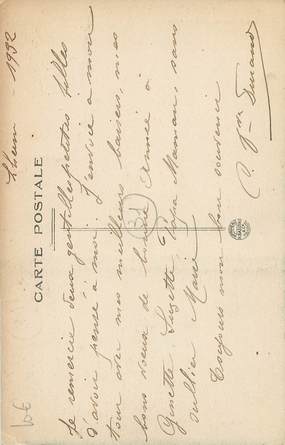 1932
CARTE POSTALE
Je remercie deux gentilles petites filles
d'avoir pensé à moi. J'envoie à mon
tour avec mes meilleurs baisers, mes
bons vœux de bonne Année à
Ginette, Suzette, Papa Maman, sans
oublier Mané
Toujours mon bon souvenir
10€